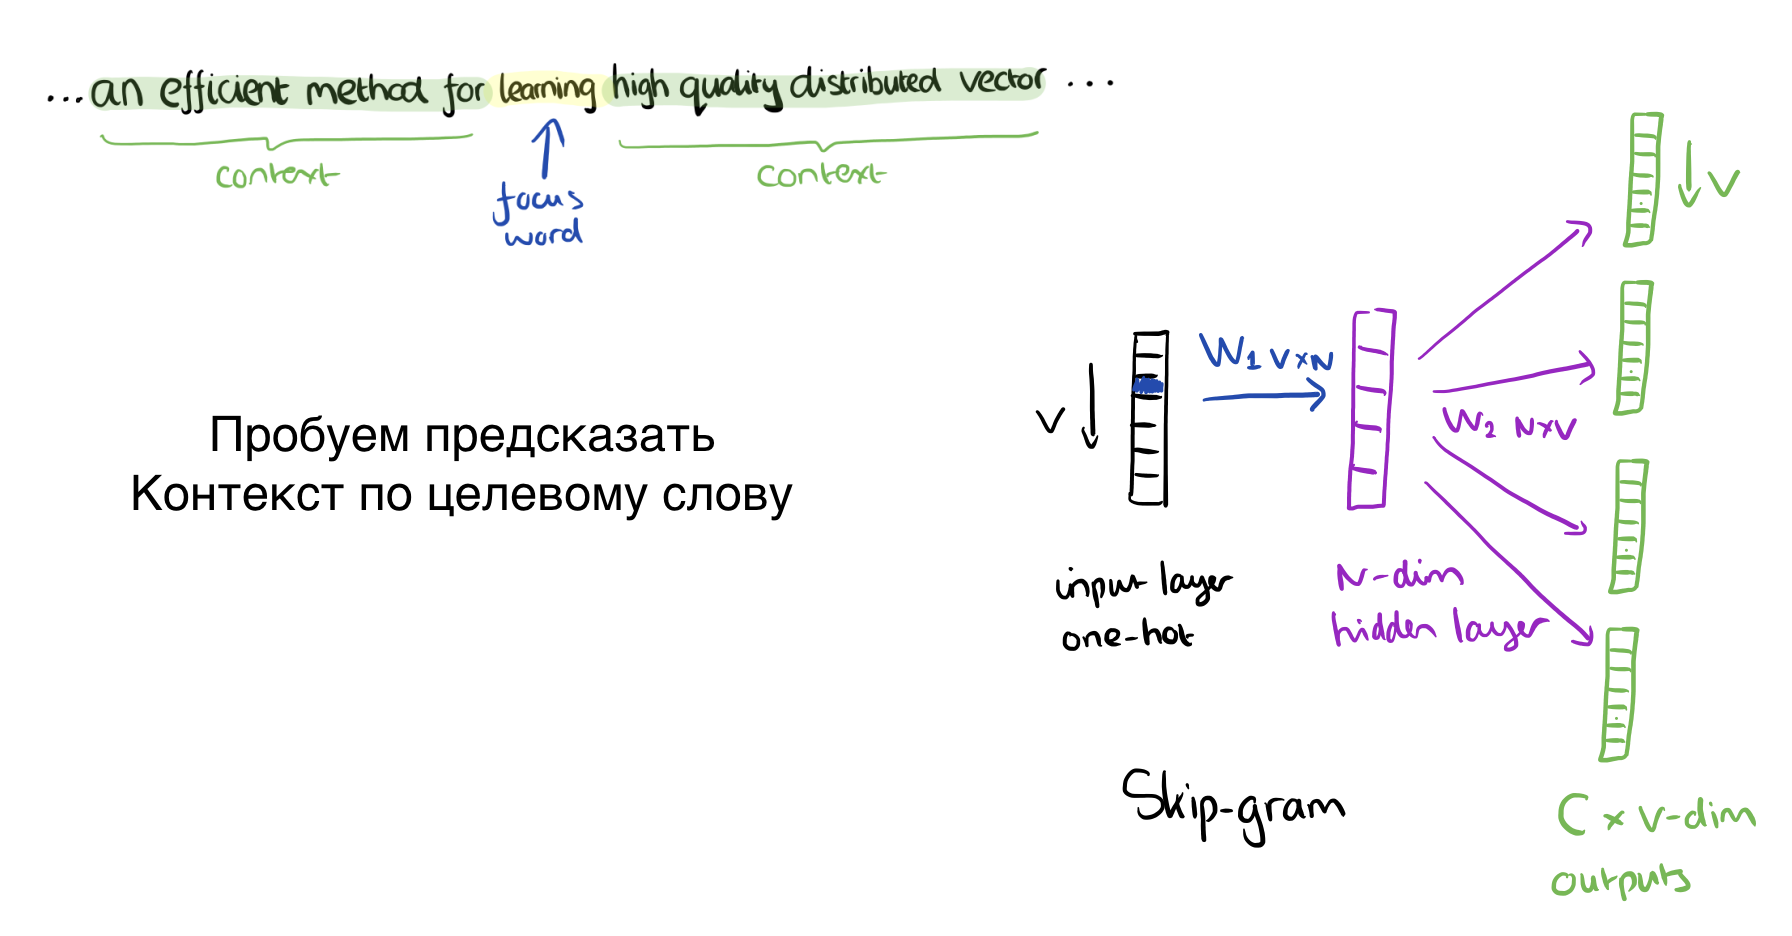 ... an efficient method for learning high quality distributed vector ...
context
focus
word
context
V
Пробуем предсказать
Контекст по целевому слову
V
W1 V×N
W2 N×V
input layer
one-hot
N-dim
hidden layer
Skip-gram
C × V-dim
outputs